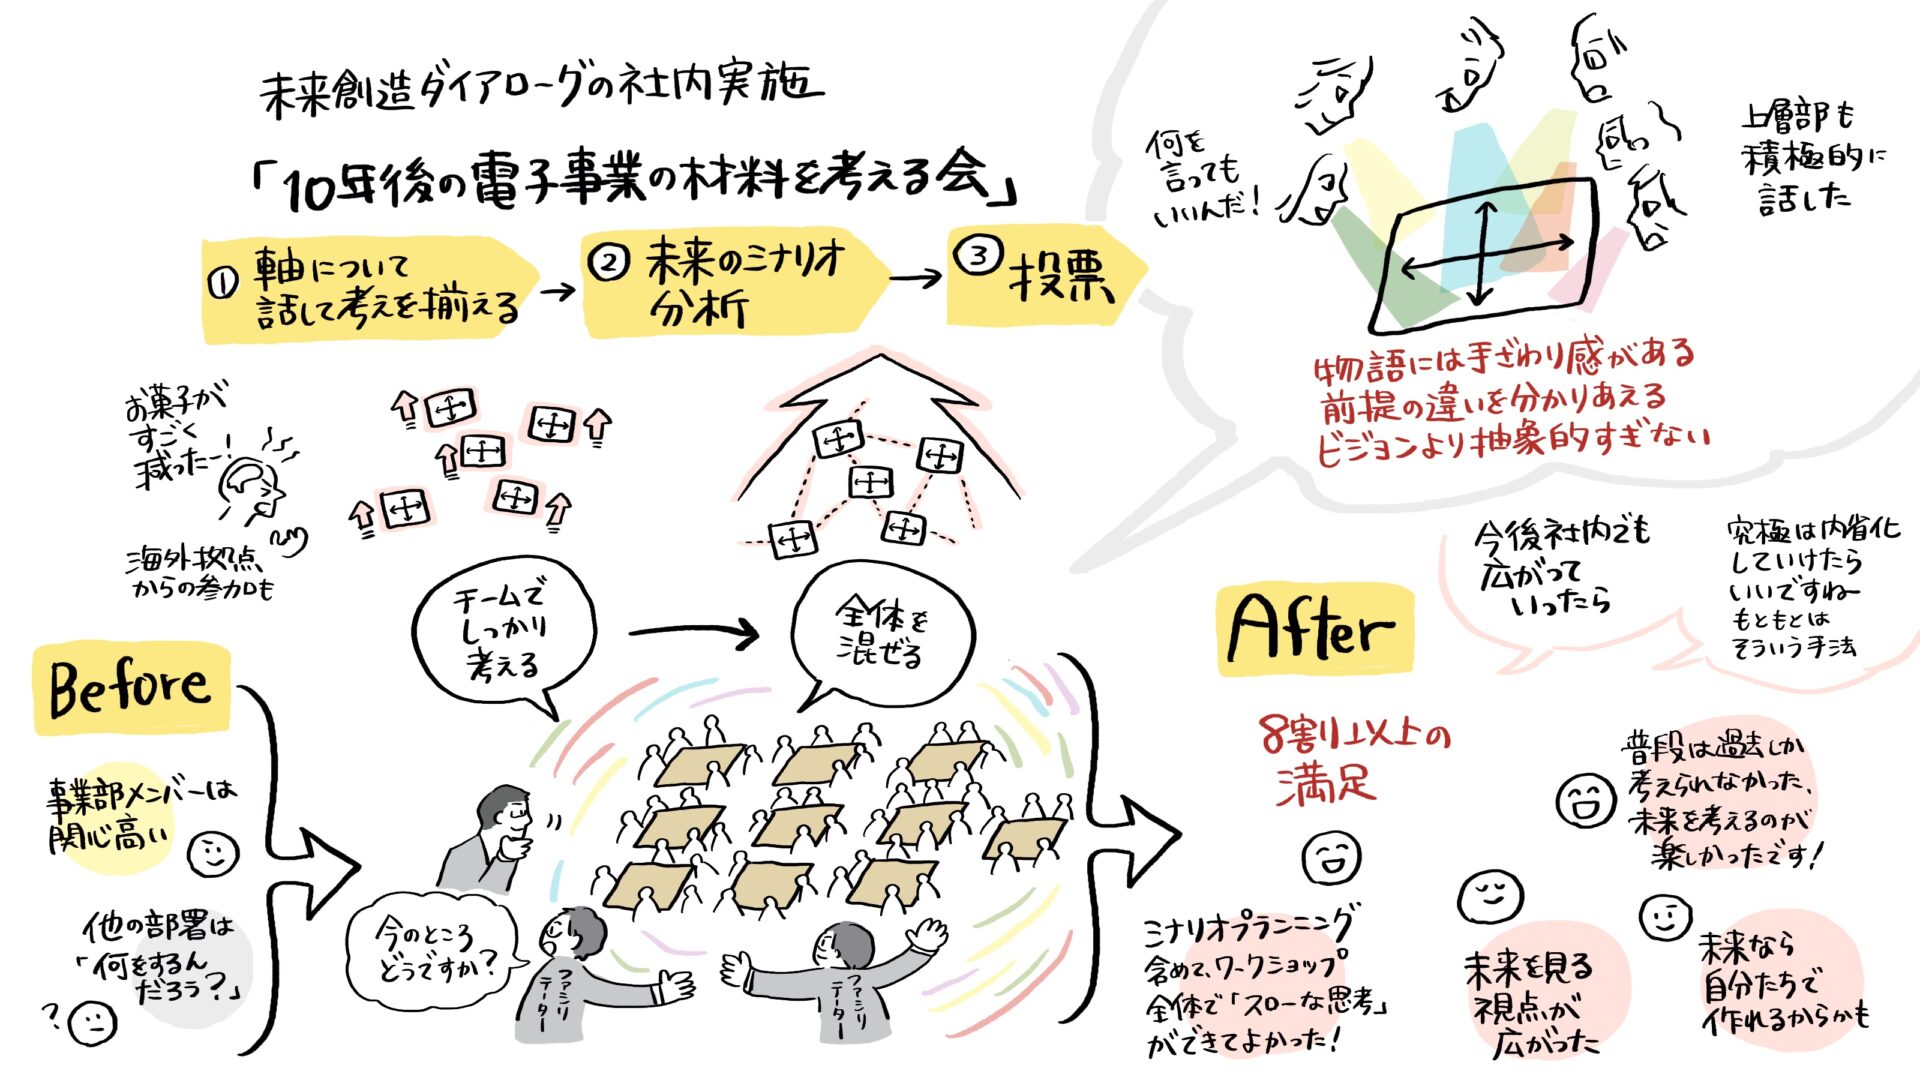 未来創造ダイアローグの社内実施
「10年後の電子事業の材料を考える会」
① 軸について
話して考えを揃える
② 未来のシナリオ
分析
③ 投票
何を
言っても
いいんだ!
上層部も
積極的に
話した
物語には手ざわり感がある
前提の違いを分かりあえる
ビジョンより抽象的すぎない
お菓子が
すごく
減ったー!
海外拠点
からの参加も
チームで
しっかり
考える
全体を
混ぜる
Before
事業部メンバーは
関心高い
他の部署は
「何をするん
だろう?」
?
今のところ
どうですか?
ファシリ
テーター
ファシリ
テーター
After
今後社内でも
広がって
いったら
究極は内省化
していけたら
いいですねー
もともとは
そういう手法
8割以上の
満足
普段は過去しか
考えられなかった、
未来を考えるのが
楽しかったです!
シナリオプランニング
含めて、ワークショップ
全体で「スローな思考」
ができてよかった!
未来を見る
視点が
広がった
未来なら
自分たちで
作れるからかも